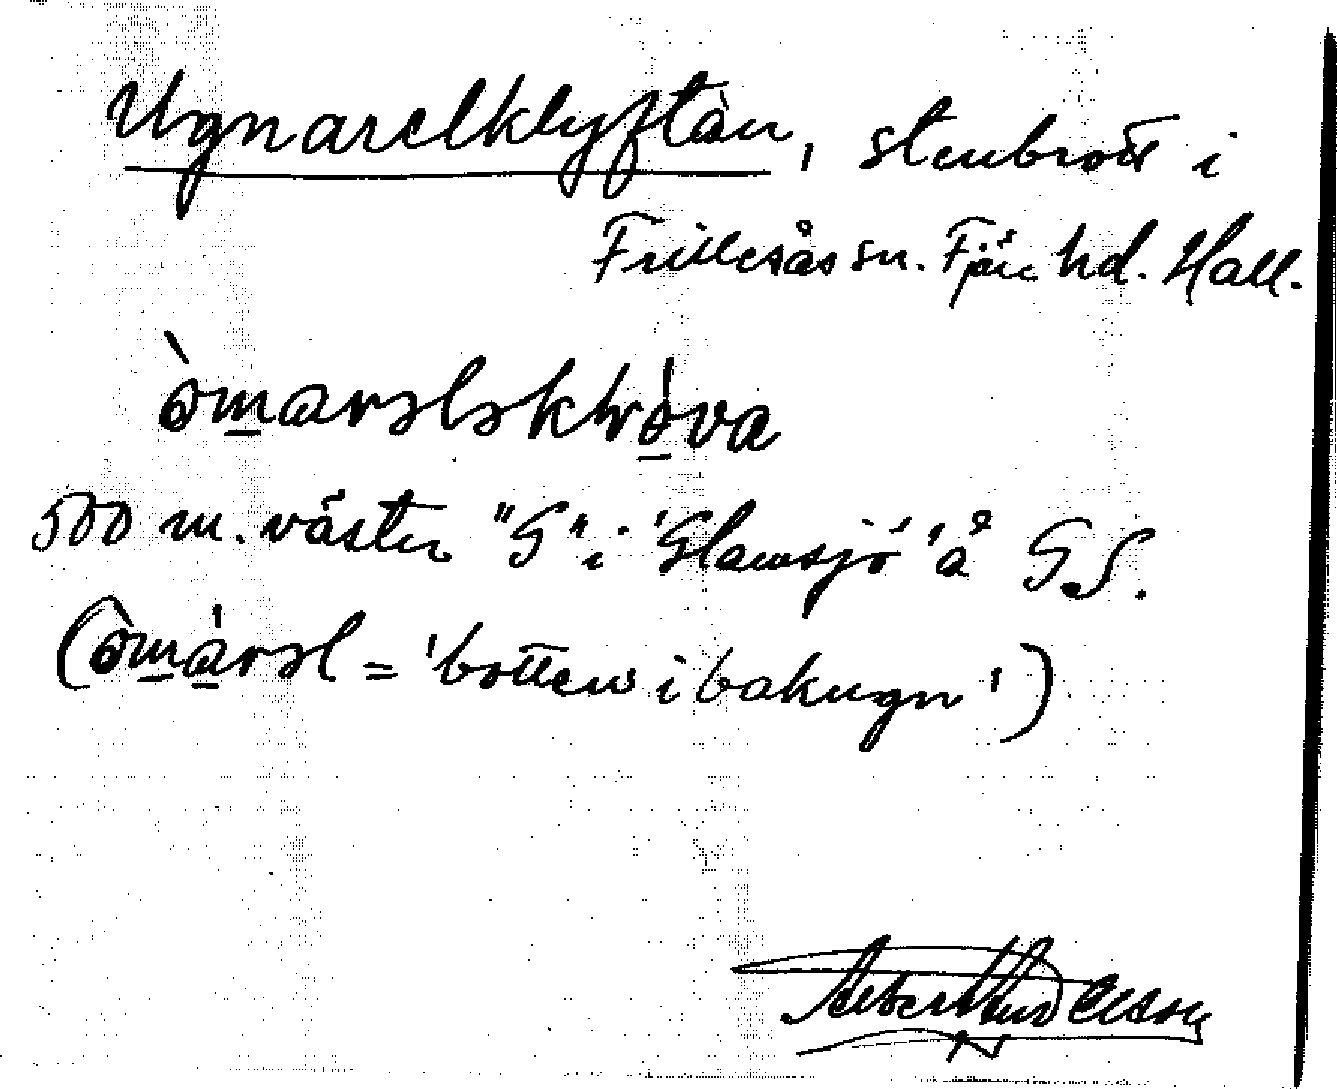 Ugnarelklyftan, stenbrott i
Frillesås sn. Fjäre hd. Hall.
òmarəlskhròva
500 m. väster "S" i 'Slamsjö' å G.S.
(òmàrəl = 'botten i bakugn')